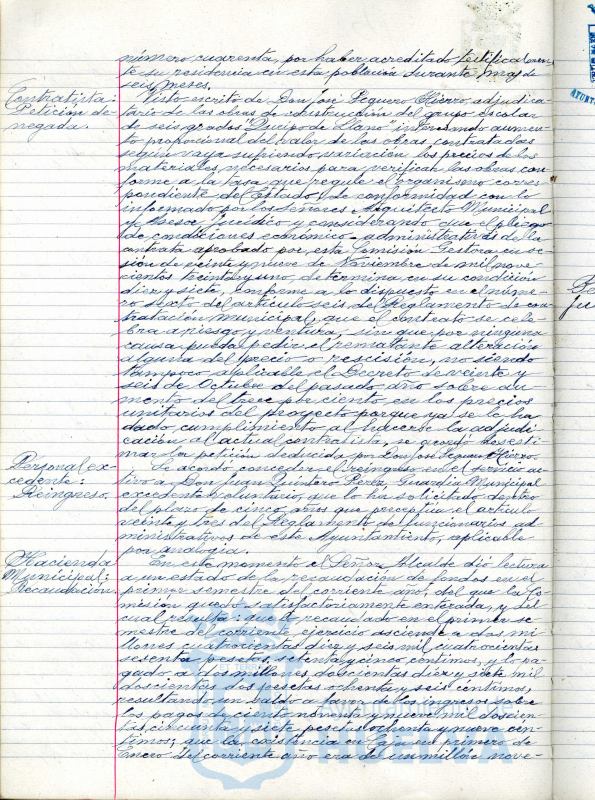 número cuarenta, por haber acreditado testifical men-
te su residencia en esta población durante mas de
seis meses.
Contratista:
Petición de-
negada.
Visto escrito de Don José Peguero Hierro, adjudica-
tario de las obras de construcción del grupo escolar
de seis grados "Queipo de Llano" interesando aumen-
to proporcional del valor de las obras contratadas
según vaya sufriendo variación los precios de los
materiales necesarios para verificar las obras, con-
forme a la tasa que regule el organismo corres-
pondiente de Estado, de conformidad con lo
informado por los Señores Arquitecto Municipal
y Asesor Jurídico y considerando que el pliego
de condiciones económico-administrativas de la
contrata aprobado por esta Comisión Gestora en se-
sión de veinte y nueve de Noviembre de mil nove-
cientos treinta y uno, determina en su condición
diez y siete, conforme a lo dispuesto en el núme-
ro sexto del artículo seis del Reglamento de con-
tratación municipal, que el contrato se cele-
bra a riesgo y ventura, sin que por ninguna
causa pueda pedir el rematante alteración
alguna del precio o rescisión, no siendo
tampoco aplicable el Decreto de veinte y
seis de Octubre del pasado año sobre au-
mento del trece por ciento en los precios
unitarios del proyecto porque ya se le ha
dado cumplimiento al hacerse la adjudi-
cación al actual contratista, se acordó desesti-
mar la petición deducida por Don José Peguero Hierro.
Personal ex-
cedente:
Reingreso.
Se acordó conceder el reingreso en el servicio ac-
tivo a Don Juan Quintero Pérez, Guardia Municipal
excedente voluntario, que lo ha solicitado dentro
del plazo de cinco años que preceptua el artículo
veinte y tres del Reglamento de funcionarios ad-
ministrativos de este Ayuntamiento, aplicable
por analogía.
Hacienda
Municipal:
Recaudación.
En este momento el Señor Alcalde dió lectura
a un estado de la recaudación de fondos en el
primer semestre del corriente año, del que la Co-
misión quedó satisfactoriamente enterada, y del
cual resulta: que lo recaudado en el primer se-
mestre del corriente ejercicio asciende a dos mi-
llones cuatrocientas diez y seis mil cuatrocientas
sesenta pesetas, setenta y cinco centimos, y lo pa-
gado a dos millones, doscientas diez y siete mil
doscientas dos pesetas ochenta y seis centimos,
resultando un saldo a favor de los ingresos sobre
los pagos de ciento noventa y nueve mil doscien-
tas cincuenta y siete pesetas ochenta y nueve cén-
timos; que la existencia en Caja en primero de
Enero del corriente año era de un millón nove-
Ayuntamiento de
HUELVA